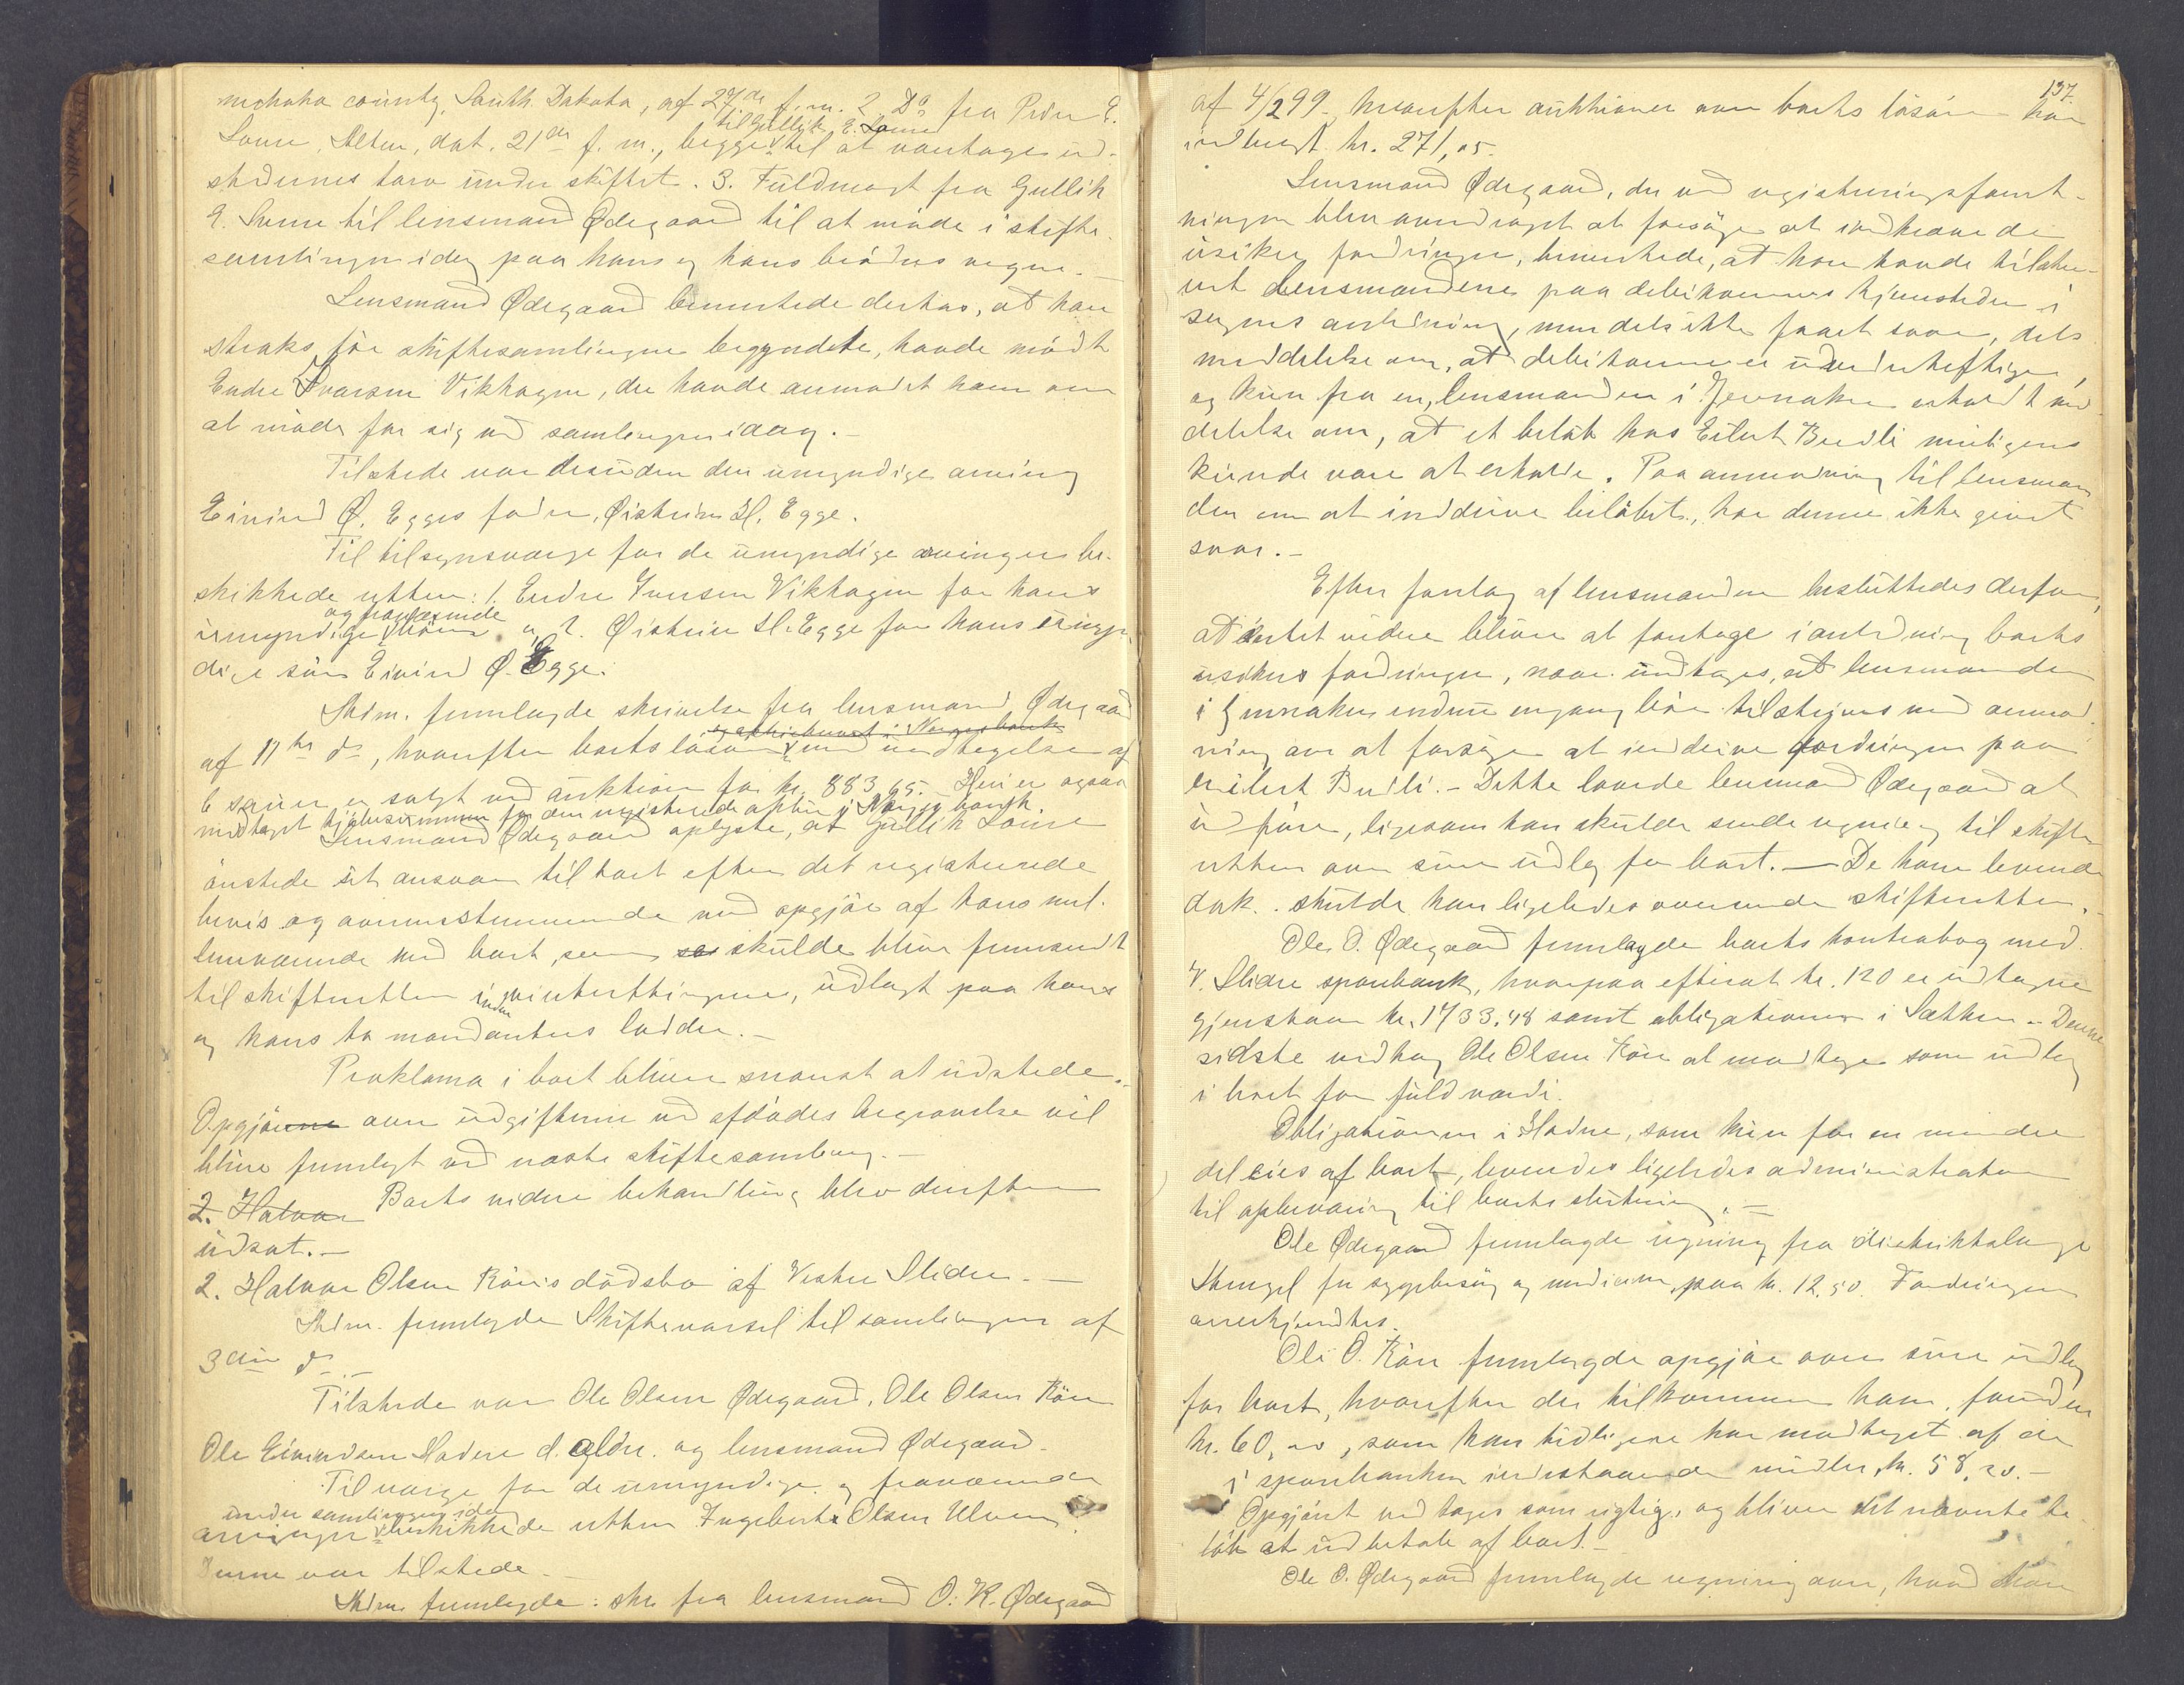 nehaha county, South Dakota, af 27de f. m. 2. Do fra Peder E.
til Gullik E. Lome
Lome, Alten, dat. 21de f. m., begge til at varetage ud-
stedernes tarv under skiftet. 3. Fuldmagt fra Gullik
E. Lome til lensmand Ødegaard til at møde i skifte-
samlingen idag paa hans og hans brødres vegne.-
Lensmand Ødegaard bemerkede derhos, at han
straks før skiftesamlingen begyndte, havde mødt
Endre Ivarsen Vikhagen, der havde anmodet ham om
at møde for sig ved samlingen idag.-
Tilstede var desuden den umyndige arving
Eivind Ø. Egges fader, Øistein H. Egge.
Til tilsynsverge for de umyndige arvinger be-
skikkede retten: 1. Endre Iversen Vikhagen for hans
og fraværende
umyndige børn og 2. Øistein H. Egge for hans umyn-
dige søn Eivind Ø. Egge.
Adm. fremlagde skrivelse fra lensmand Ødegaard
og aktiebrevet i Norges bank
af 11te ds, hvorefter boets løsøre med undtagelse af
6 sauer er solgt ved auktion for kr. 883,65. Heri er ogsaa
medtaget kjøbesummen for den registrerede aktie i Norges bank.
Lensmand Ødegaard oplyste, at Gullik Lome
ønskede sit ansvar til boet efter det registrerede
bevis og overensstemmende med opgjør af hans mel-
lemværende med boet, som skulde blive fremsendt
til skifteretten inden vintertthingene, udlagt paa hans
og hans to mandanters lodder.-
Proklama i boet bliver snarest at udstede.-
Opgjør over udgifterne ved afdødes begravelse vil
blive fremlagt ved næste skiftesamling.-
2. Halvor Boets videre behandling blev derefter
udsat.-
2. Halvor Olsen Røns dødsbo af Vestre Slidre.-
Adm. fremlagde Skiftevarsel til samlingen af
3die ds.-
Tilstede var Ole Olsen Ødegaard, Ole Olsen Røn
Ole Eivindsen Hadne d. ældre. og lensmand Ødegaard.
Til verge for de umyndige og fraværende
under samlingen idag
arvinger beskikkede retten Ingebert Olsen Ulven.
Denne var tilstede.-
Adm. fremlagde: skr. fra lensmand O. K. Ødegaard
137.
af 4/2 99, hvorefter auktionen over boets løsøre har
indbragt kr. 271,05.
Lensmand Ødegaard, der ved registreringsforret-
ningen blev overdraget at forsøge at indkræve de
usikre fordringer, bemerkede, at han havde tilskre-
vet lensmændene paa debitorernes hjemsteder i
sagens anledning, men dels ikke faaet svar, dels
meddelelse om, at debitorerne er uvederheftige,
og kun fra en, lensmanden i Jevnaker erholdt med-
delelse om, at et beløb hos Eilert Budli muligens
kunde være at erholde. Paa anmodning til lensman-
den om at inddrive beløbet, har denne ikke givet
svar.-
Efter forslag af lensmanden besluttedes derfor,
at intet videre bliver at foretage i anledning boets
usikre fordringer, naar undtages, at lensmanden
i Jevnaker endnu engang bør tilskrives med anmod-
ning om at forsøge at inddrive fordringen paa
Eilert Budli.- Dette lovede lensmand Ødegaard at
udføre, ligesom han skulde sende regning til skifte-
retten over sine udlæg for boet.- De ham leverede
dok. skulde han ligeledes oversende skifteretten.-
Ole O. Ødegaard fremlagde boets kontrabog med
V. Slidre sparebank, hvorpaa efterat kr. 120 er udtagne
gjenstaar kr. 1733,48 samt obligationen i Sætken.- Denne
sidste vedtog Ole Olsen Røn at modtage som udlæg
i boet for fuld værdi.
Obligationen i Hadne, som kun for en mindre
del eies af boet, leveredes ligeledes administrator
til opbevaring til boets slutning.-
Ole Ødegaard fremlagde regning fra distriktslæge
Stengel for sygebesøg og medicin, paa kr. 12,50. Fordringen
anerkjendtes.
Ole O. Røn fremlagde opgjør over sine udlæg
for boet, hvorefter der tilkommer ham, foruden
kr. 60,00, som han tidligere har modtaget af de
i sparebanken indestaaende midler, kr. 58,20.-
Opgjøret vedtages som rigtig, og bliver det nævnte be-
løb at udbetale af boet.-
Ole O. Ødegaard fremlagde regning over, hvad han